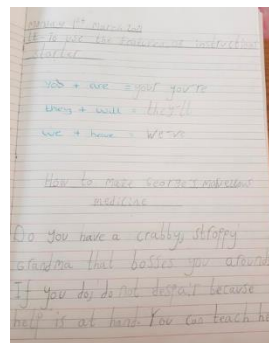 Monday 1st March
LO: To use the features of instructions
Starter
you + are = your you're
they + will = they'll
we + have = we've
How to make George's marvellous
medicine
Do you have a crabby, stroppy
grandma that bosses you around
If you do, do not despair because
help is at hand. You can teach